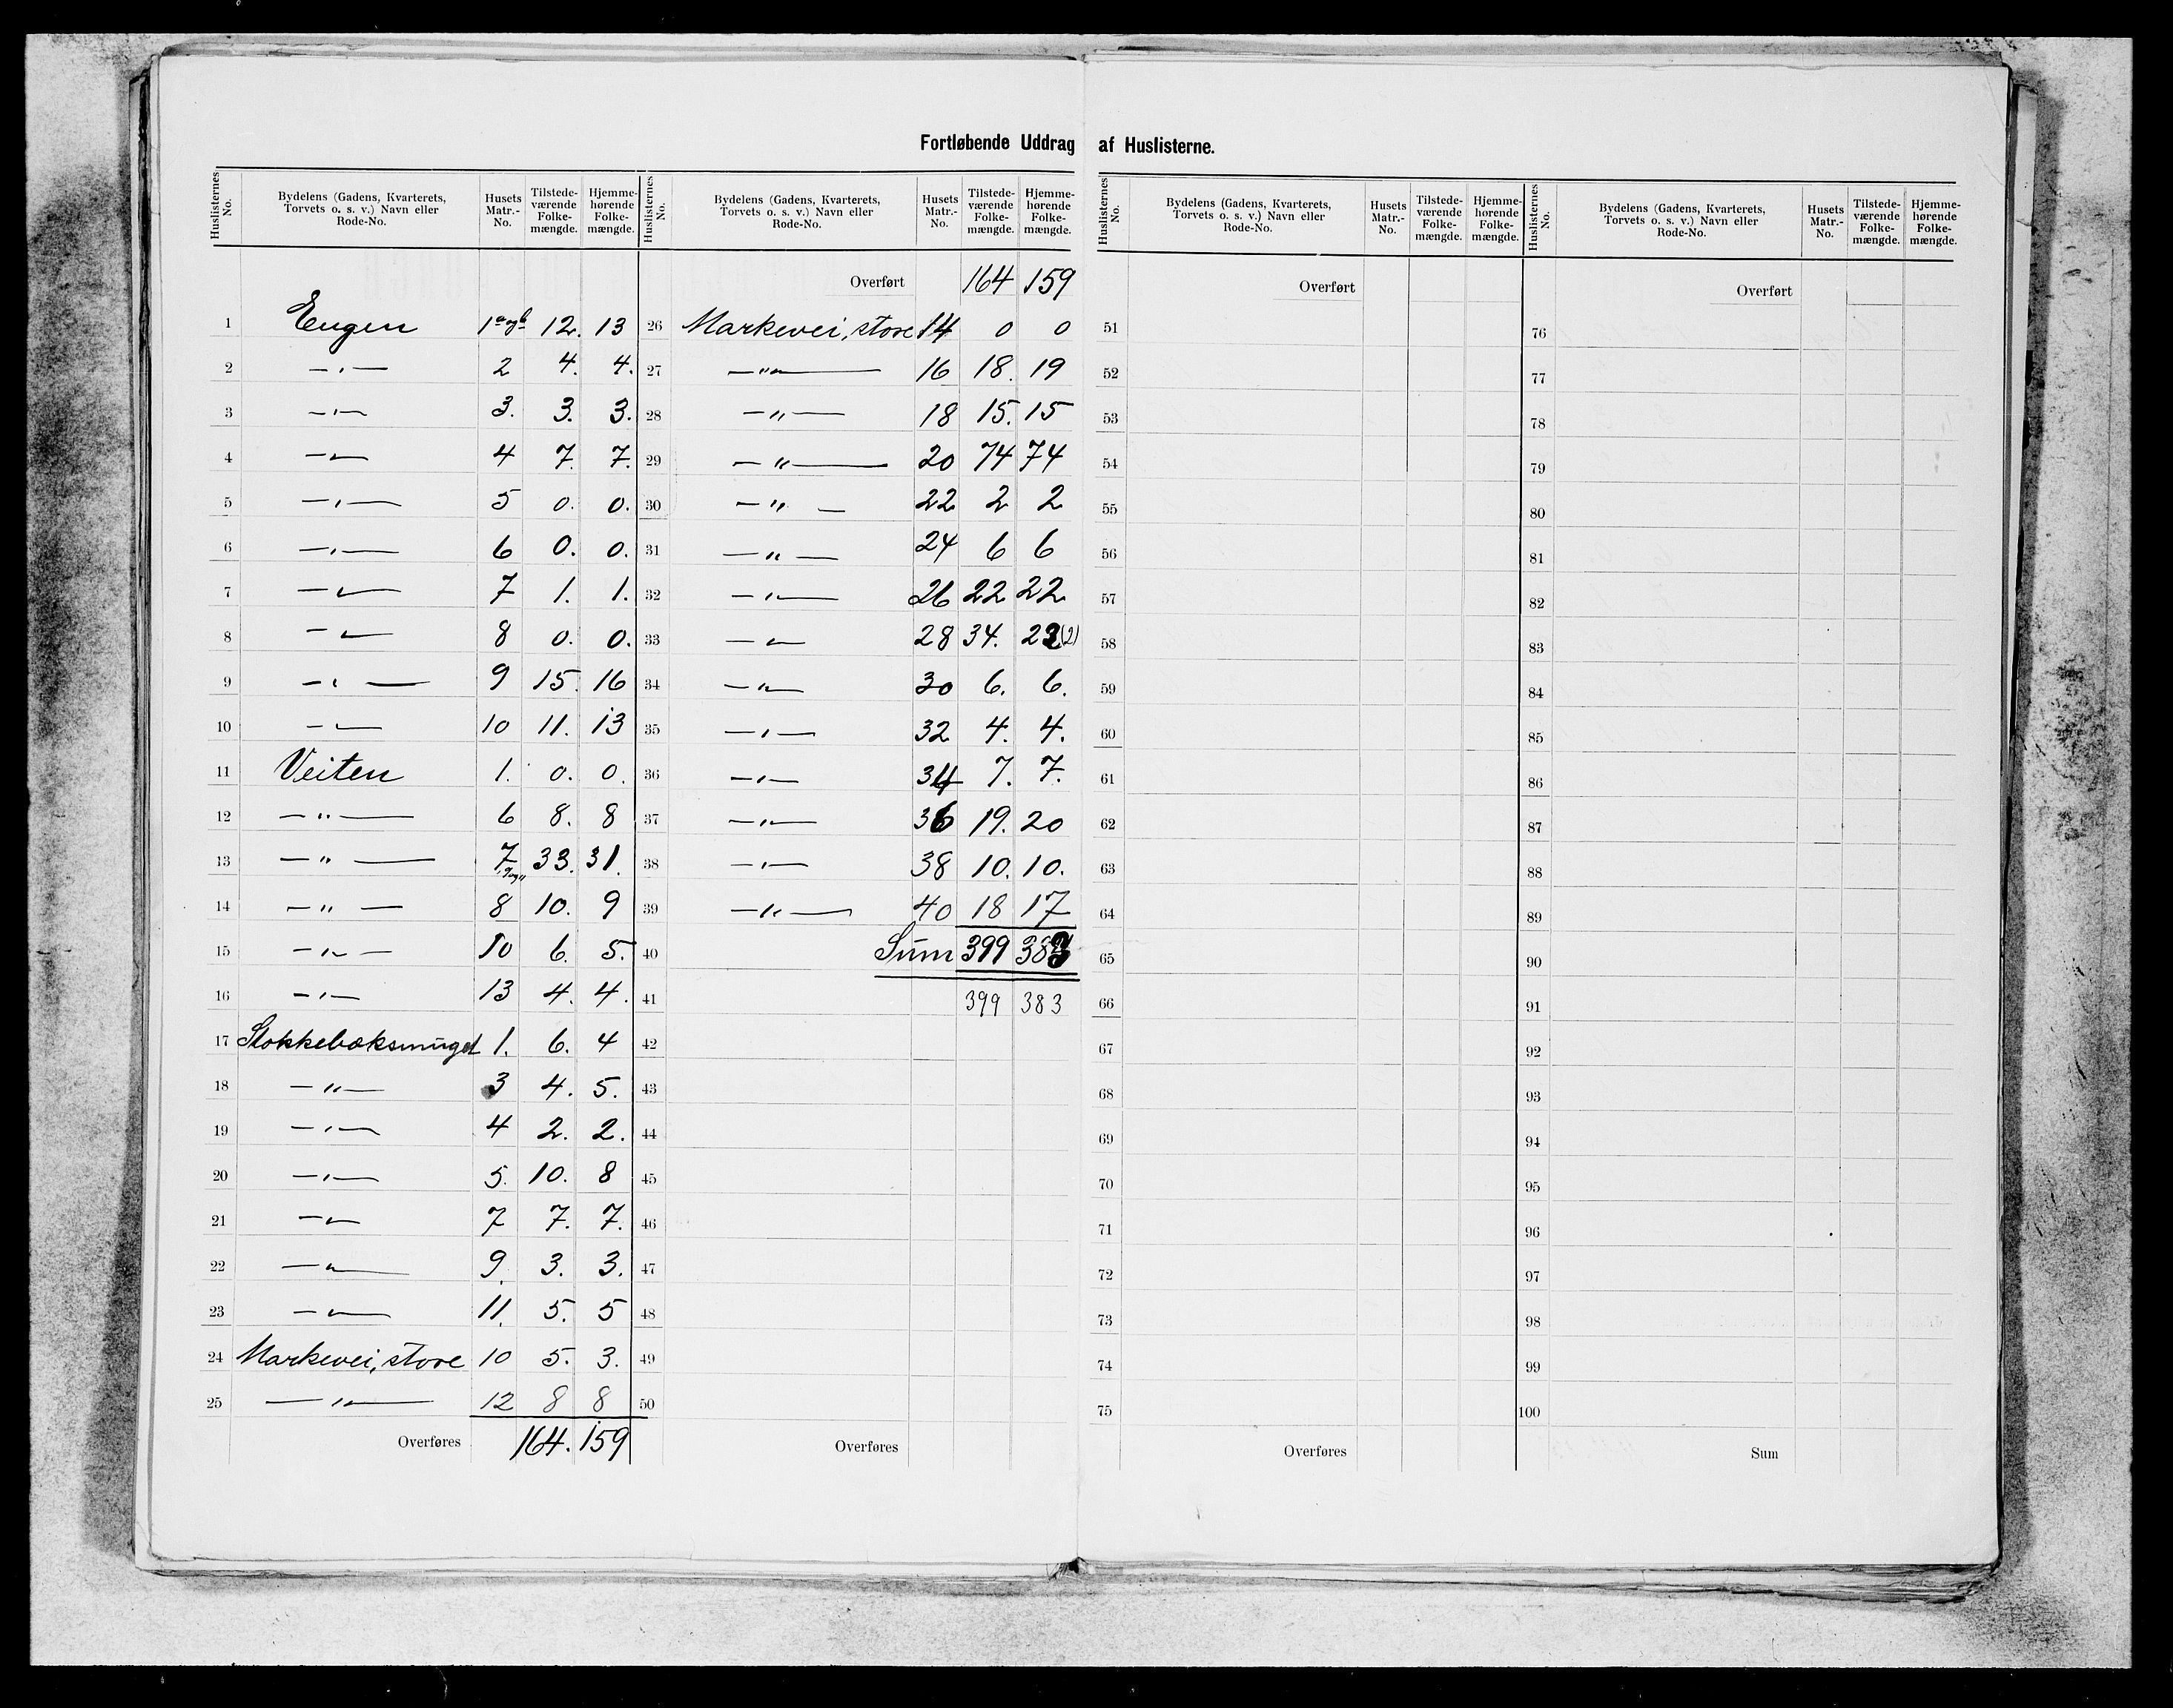 Fortløbende Uddrag af Huslisterne.
Huslisternes No. | Bydelens (Gadens, Kvarterets, Torvets o. s. v.) Navn eller Rode-No. | Husets Matr.-No. | Tilstede-værende Folke-mængde. | Hjemme-hørende Folke-mængde.
1 Engen 1a og b 12. 13
2 —„— 2 4. 4.
3 —„— 3. 3. 3.
4 —„— 4 7. 7.
5 —„— 5 0. 0.
6 —„— 6 0. 0.
7 —„— 7 1. 1.
8 —„— 8 0. 0.
9 —„— 9 15. 16
10 —„— 10 11. 13
11 Veiten 1. 0. 0.
12 —„— 6 8. 8
13 —„— 7, 9 og 11 33. 31.
14 —„— 8 10. 9
15 —„— 10 6. 5.
16 —„— 13 4. 4.
17 Stokkebæksmuget 1. 6. 4
18 —„— 3 4. 5.
19 —„— 4 2. 2.
20 —„— 5. 10. 8
21 —„— 7 7. 7.
22 —„— 9. 3. 3.
23 —„— 11. 5. 5
24 Markevei, store 10 5. 3.
25 —„— 12 8 8
Overføres 164. 159
Huslisternes No. | Bydelens (Gadens, Kvarterets, Torvets o. s. v.) Navn eller Rode-No. | Husets Matr.-No. | Tilstede-værende Folke-mængde. | Hjemme-hørende Folke-mængde.
Overført 164 159
26 Markevei, store 14 0 0
27 —„— 16 18. 19
28 —„— 18 15. 15
29 —„— 20 74 74
30 —„— 22 2 2
31 —„— 24 6 6
32 —„— 26 22 22
33 —„— 28 34. 23 (2)
34 —„— 30 6. 6.
35 —„— 32 4. 4.
36 —„— 34 7. 7.
37 —„— 36 19. 20
38 —„— 38 10. 10.
39 —„— 40 18 17
40 Sum 399 383
41 399 383
42
43
44
45
46
47
48
49
50
Overføres
Huslisternes No. | Bydelens (Gadens, Kvarterets, Torvets o. s. v.) Navn eller Rode-No. | Husets Matr.-No. | Tilstede-værende Folke-mængde. | Hjemme-hørende Folke-mængde.
Overført
51
52
53
54
55
56
57
58
59
60
61
62
63
64
65
66
67
68
69
70
71
72
73
74
75
Overføres
Huslisternes No. | Bydelens (Gadens, Kvarterets, Torvets o. s. v.) Navn eller Rode-No. | Husets Matr.-No. | Tilstede-værende Folke-mængde. | Hjemme-hørende Folke-mængde.
Overført
76
77
78
79
80
81
82
83
84
85
86
87
88
89
90
91
92
93
94
95
96
97
98
99
100
Sum